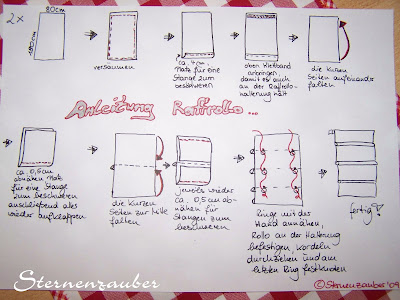 2x
80cm
versäumen
ca. 4cm
Naht für eine
Stange zum
beschweren
oben Klettband
anbringen,
damit es auch
an der Raffrollo-
halterung hält
die kurzen
Seiten aufeinander
falten.
Anleitung Raffrollo...
ca. 0,5cm
abnähen Naht
für eine Stange
zum beschweren
anschließend alles
wieder aufklappen.
die kurzen
Seiten zur Mitte
falten
jeweils wieder
ca. 0,5cm ab-
nähen für
Stangen zum
beschweren
Ringe mit der
Hand annähen,
Rollo an der Halterung
befestigen Kordeln
durchziehen und am
letzten Ring festknoten
fertig!
Sternenzauber
©Sternenzauber '09